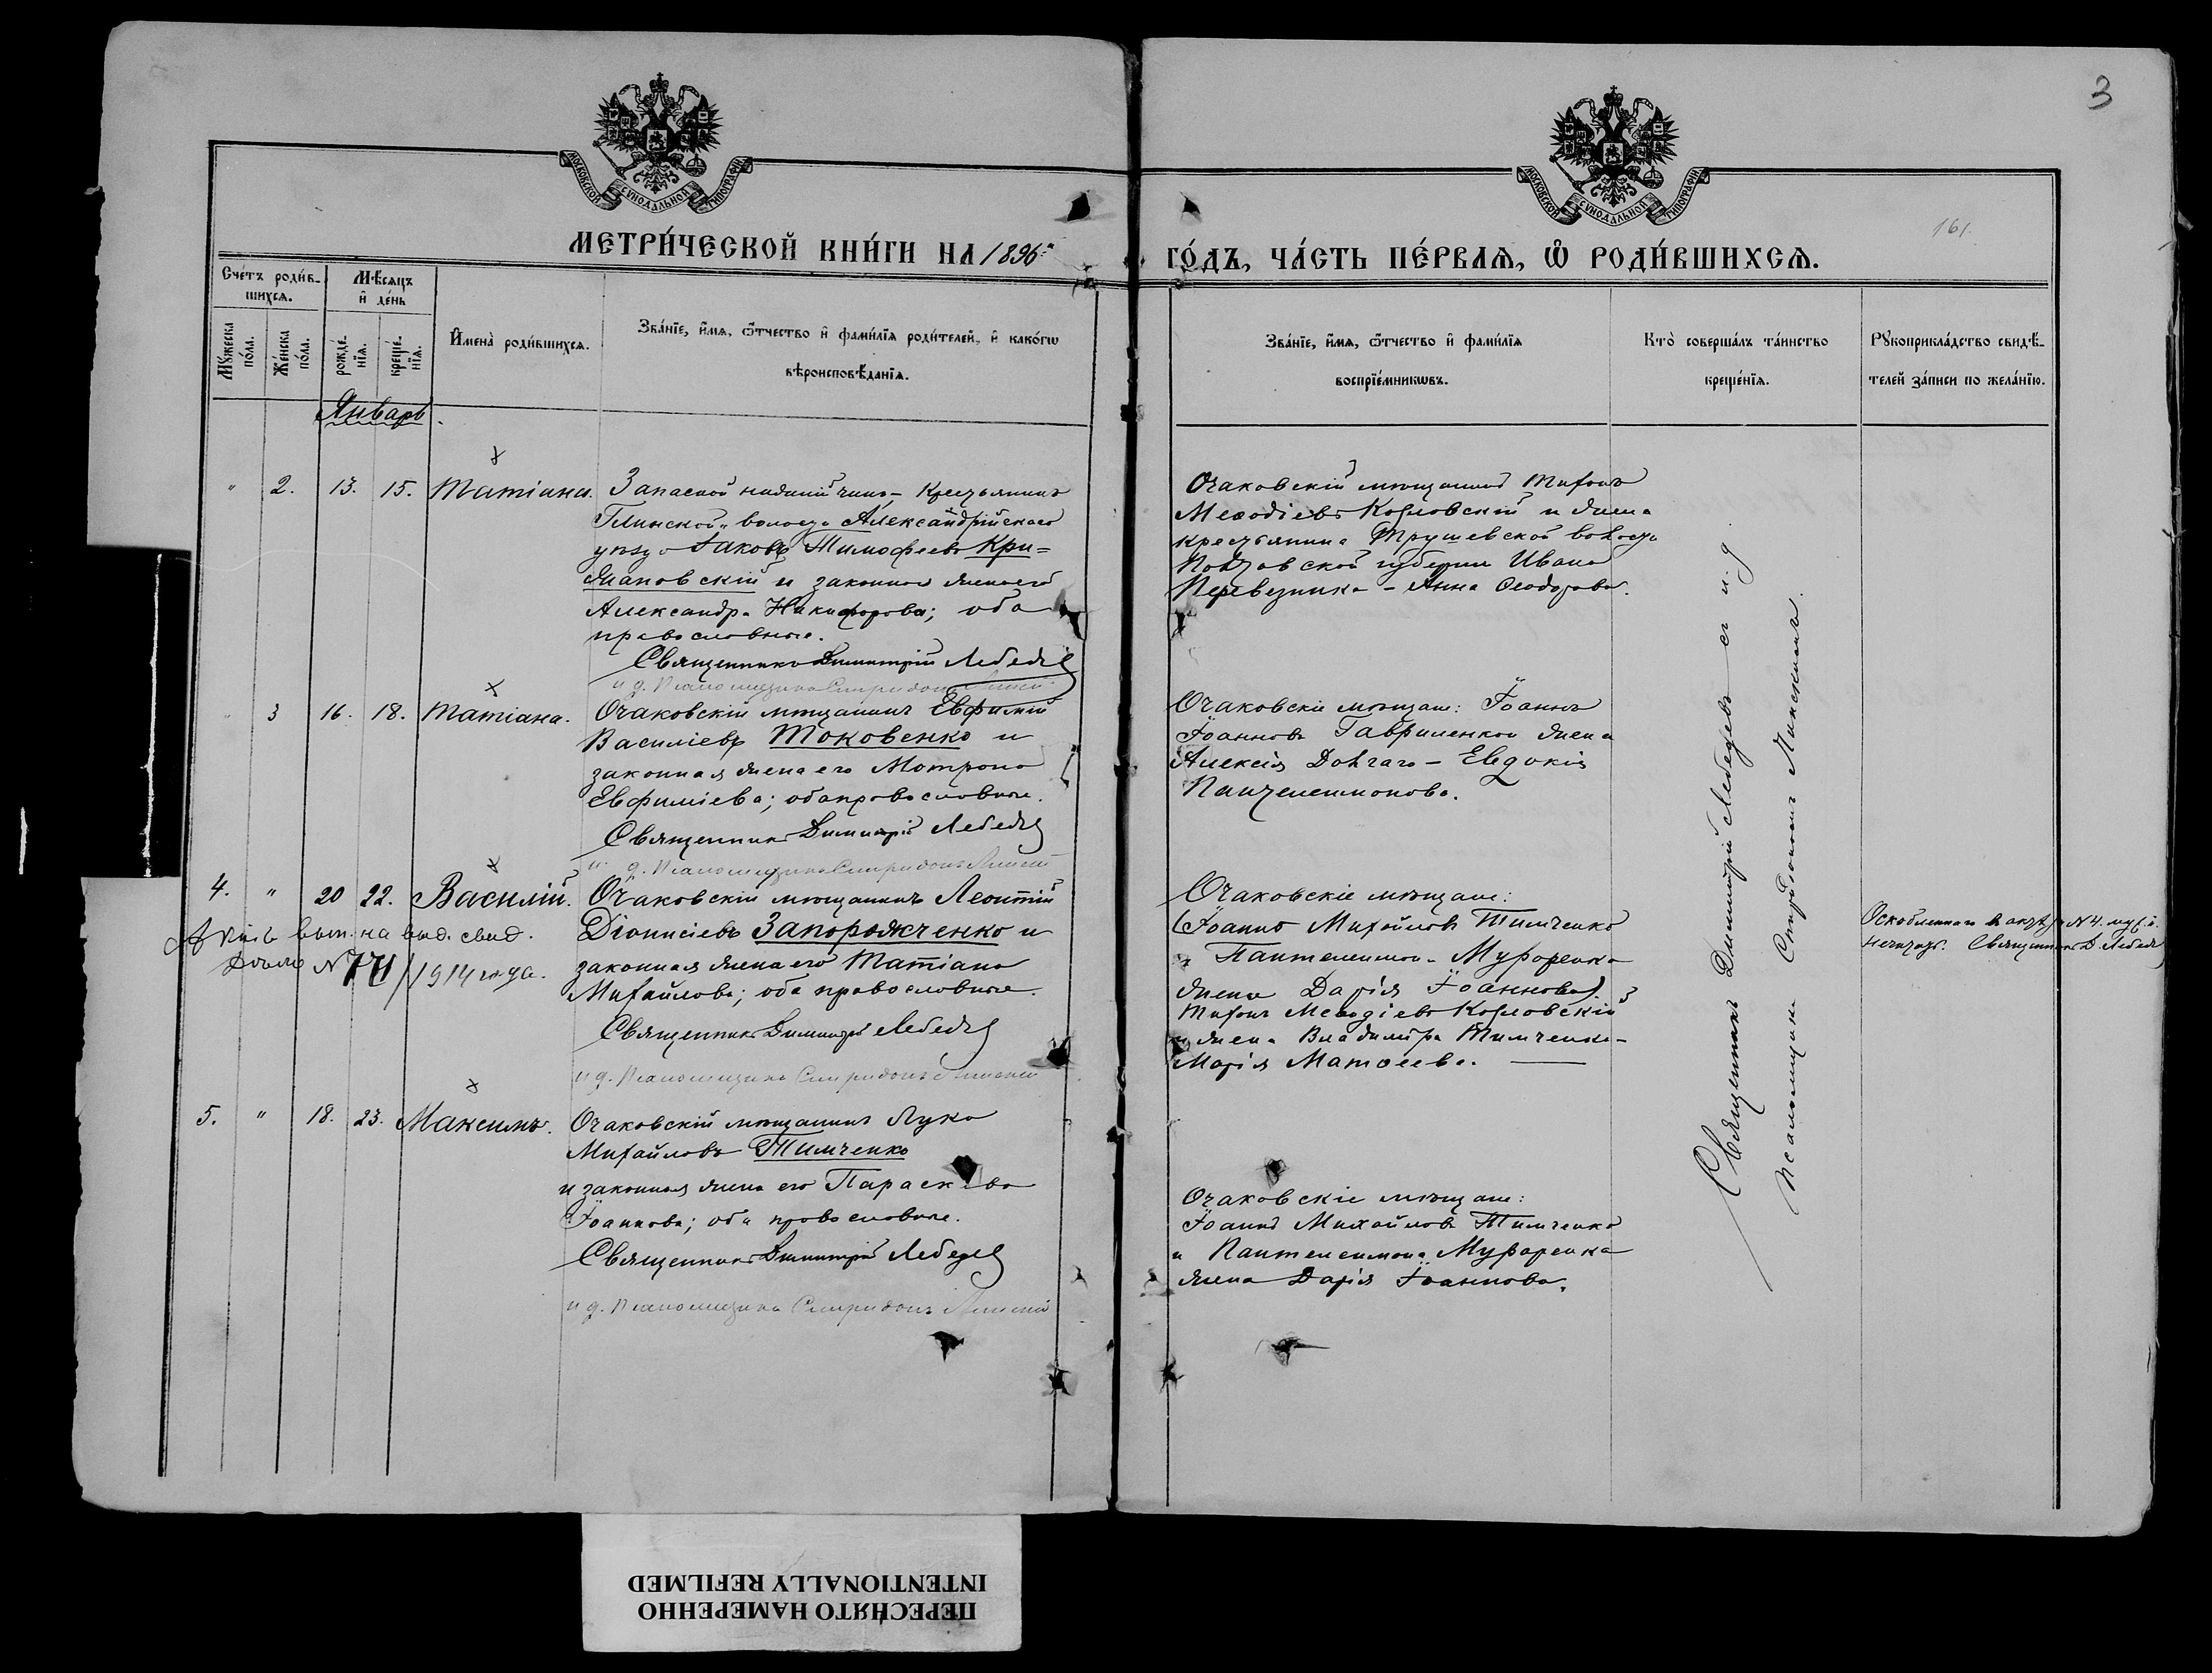 3
161.
МОСКОВСКОЙ СѴНОДАЛЬНОЙ ТИПОГРАФІИ
МОСКОВСКОЙ СѴНОДАЛЬНОЙ ТИПОГРАФІИ
МЕТРИ́ЧЕСКОЙ КНИ́ГИ НА 1896й
ГО́ДЪ, ЧА́СТЬ ПЕ́РВАѦ, Ѽ РОДИ́ВШИХСѦ.
Счётъ роди́в-
шихсѧ.
Мѣ́сѧцъ
и҆ де́нь
Мꙋ́жеска
по́ла.
Же́нска
по́ла.
рожде́-
нїѧ.
креще́-
нїѧ.
И҆мена̀ роди́вшихсѧ.
Зва́нїе, и҆́мѧ, ѻ҆́тчество и҆ фами́лїѧ роди́телей, и҆ како́гѡ
вѣроисповѣ́данїѧ.
Зва́нїе, и҆́мѧ, ѻ҆́тчество и҆ фами́лїѧ
воспрїе́мникѡвъ.
Кто̀ соверша́лъ та́инство
креще́нїѧ.
Рꙋкоприкла́дство свидѣ́-
телей за́писи по жела́нїю.
Январь.
" 2. 13. 15. Татіана.
Запасной нижній чинъ - крестьянинъ
Глинской волости Александрійскаго
уѣзда Іаковъ Тимофеевъ Кри-
жановскій и законная жена его
Александра Никифорова; оба
православные.
Священникъ Димитрій Лебедевъ
и д. Псаломщика Спиридонъ Линскій
Очаковскій мѣщанинъ Тихонъ
Меѳодіевъ Козловскій и жена
крестьянина Трушевской волости
Полтавской губерніи Ивана
Перевезника - Анна Ѳеодорова.
" 3 16. 18. Татіана.
Очаковскій мѣщанинъ Евфимій
Василіевъ Токовенко и
законная жена его Мотрона
Евфиміева; оба православные.
Священникъ Димитрій Лебедевъ
и д. Псаломщика Спиридонъ Линскій
Очаковскіе мѣщане: Іоаннъ
Іоанновъ Гавриленко и жена
Алексія Долгаго - Евдокія
Пантелеимонова.
4. " 20 22. Василій.
Актъ вып. на выд. свид.
№ 771/1914 года.
Очаковскій мѣщанинъ Леонтій
Діонисіевъ Запорожченко и
законная жена его Татіана
Михайлова; оба православные.
Священникъ Димитрій Лебедевъ
и д. Псаломщика Спиридонъ Линскій
Очаковскіе мѣщане:
(Іоаннъ Михайловъ Тимченко
и Пантелеимона Муфоренка
жена Дарія Іоаннова).
Тихонъ Меѳодіевъ Козловскій
и жена Владиміра Тимченка -
Марія Матѳеева.
Священникъ Д. Лебедевъ
5. " 18. 23. Максимъ.
Очаковскій мѣщанинъ Лука
Михайловъ Тимченко
и законная жена его Параскева
Іоаннова; оба православные.
Священникъ Димитрій Лебедевъ
и д. Псаломщика Спиридонъ Линскій
Очаковскіе мѣщане:
Іоаннъ Михайловъ Тимченко
и Пантелеимона Муфоренка
жена Дарія Іоаннова.
Священникъ Димитрій Лебедевъ съ и. д.
Псаломщика Спиридономъ Линскимъ.
ПЕРЕСНЯТО НАМЕРЕННО
INTENTIONALLY REFILMED